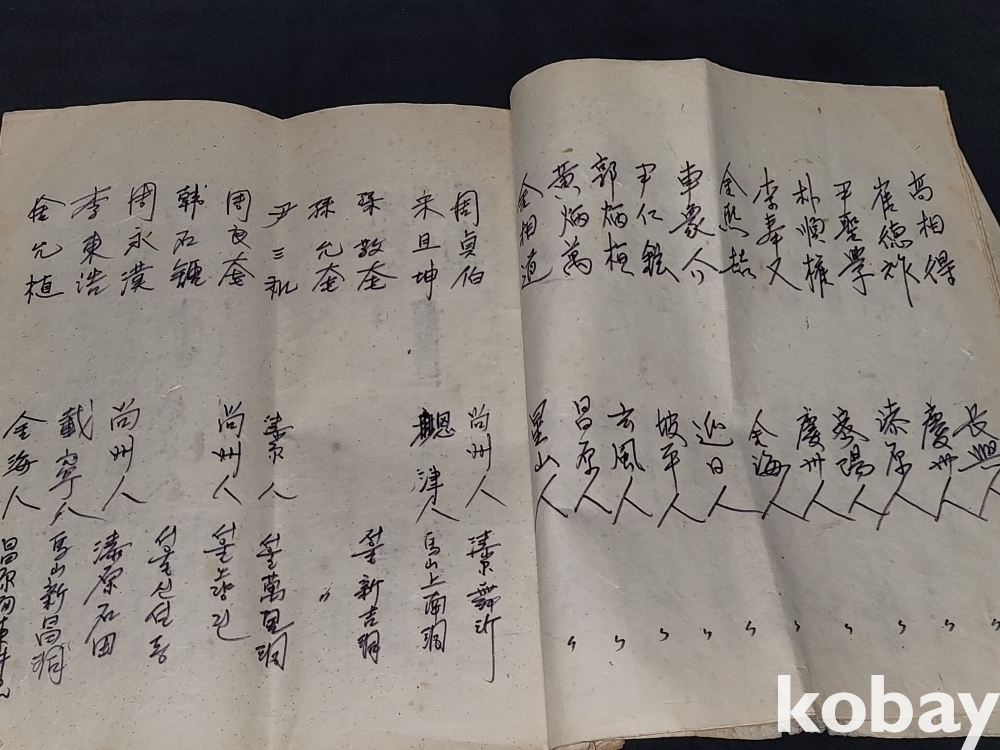 高相得 長興人
崔德祚 慶州人 〃
尹聖學 漆原人 〃
朴順權 密陽人 〃
李奉文 慶州人 〃
金熙喆 金海人 〃
車象人 延日人 〃
尹仁鉉 坡平人 〃
郭炳桓 玄風人 〃
黃炳萬 昌原人 〃
金相道 星山人
周貞伯 尚州人 漆原
宋且坤 津人 馬山上南洞
孫敬奎 서울 新吉洞
孫允奎 〃
尹三 漆原人 서울 萬里洞
周良奎 尚州人 서울
韓石鍾 서울신설동
周永漢 尚州人 漆原石田
李東浩 載寧人 馬山新昌洞
金允植 金海人 昌原
kobay